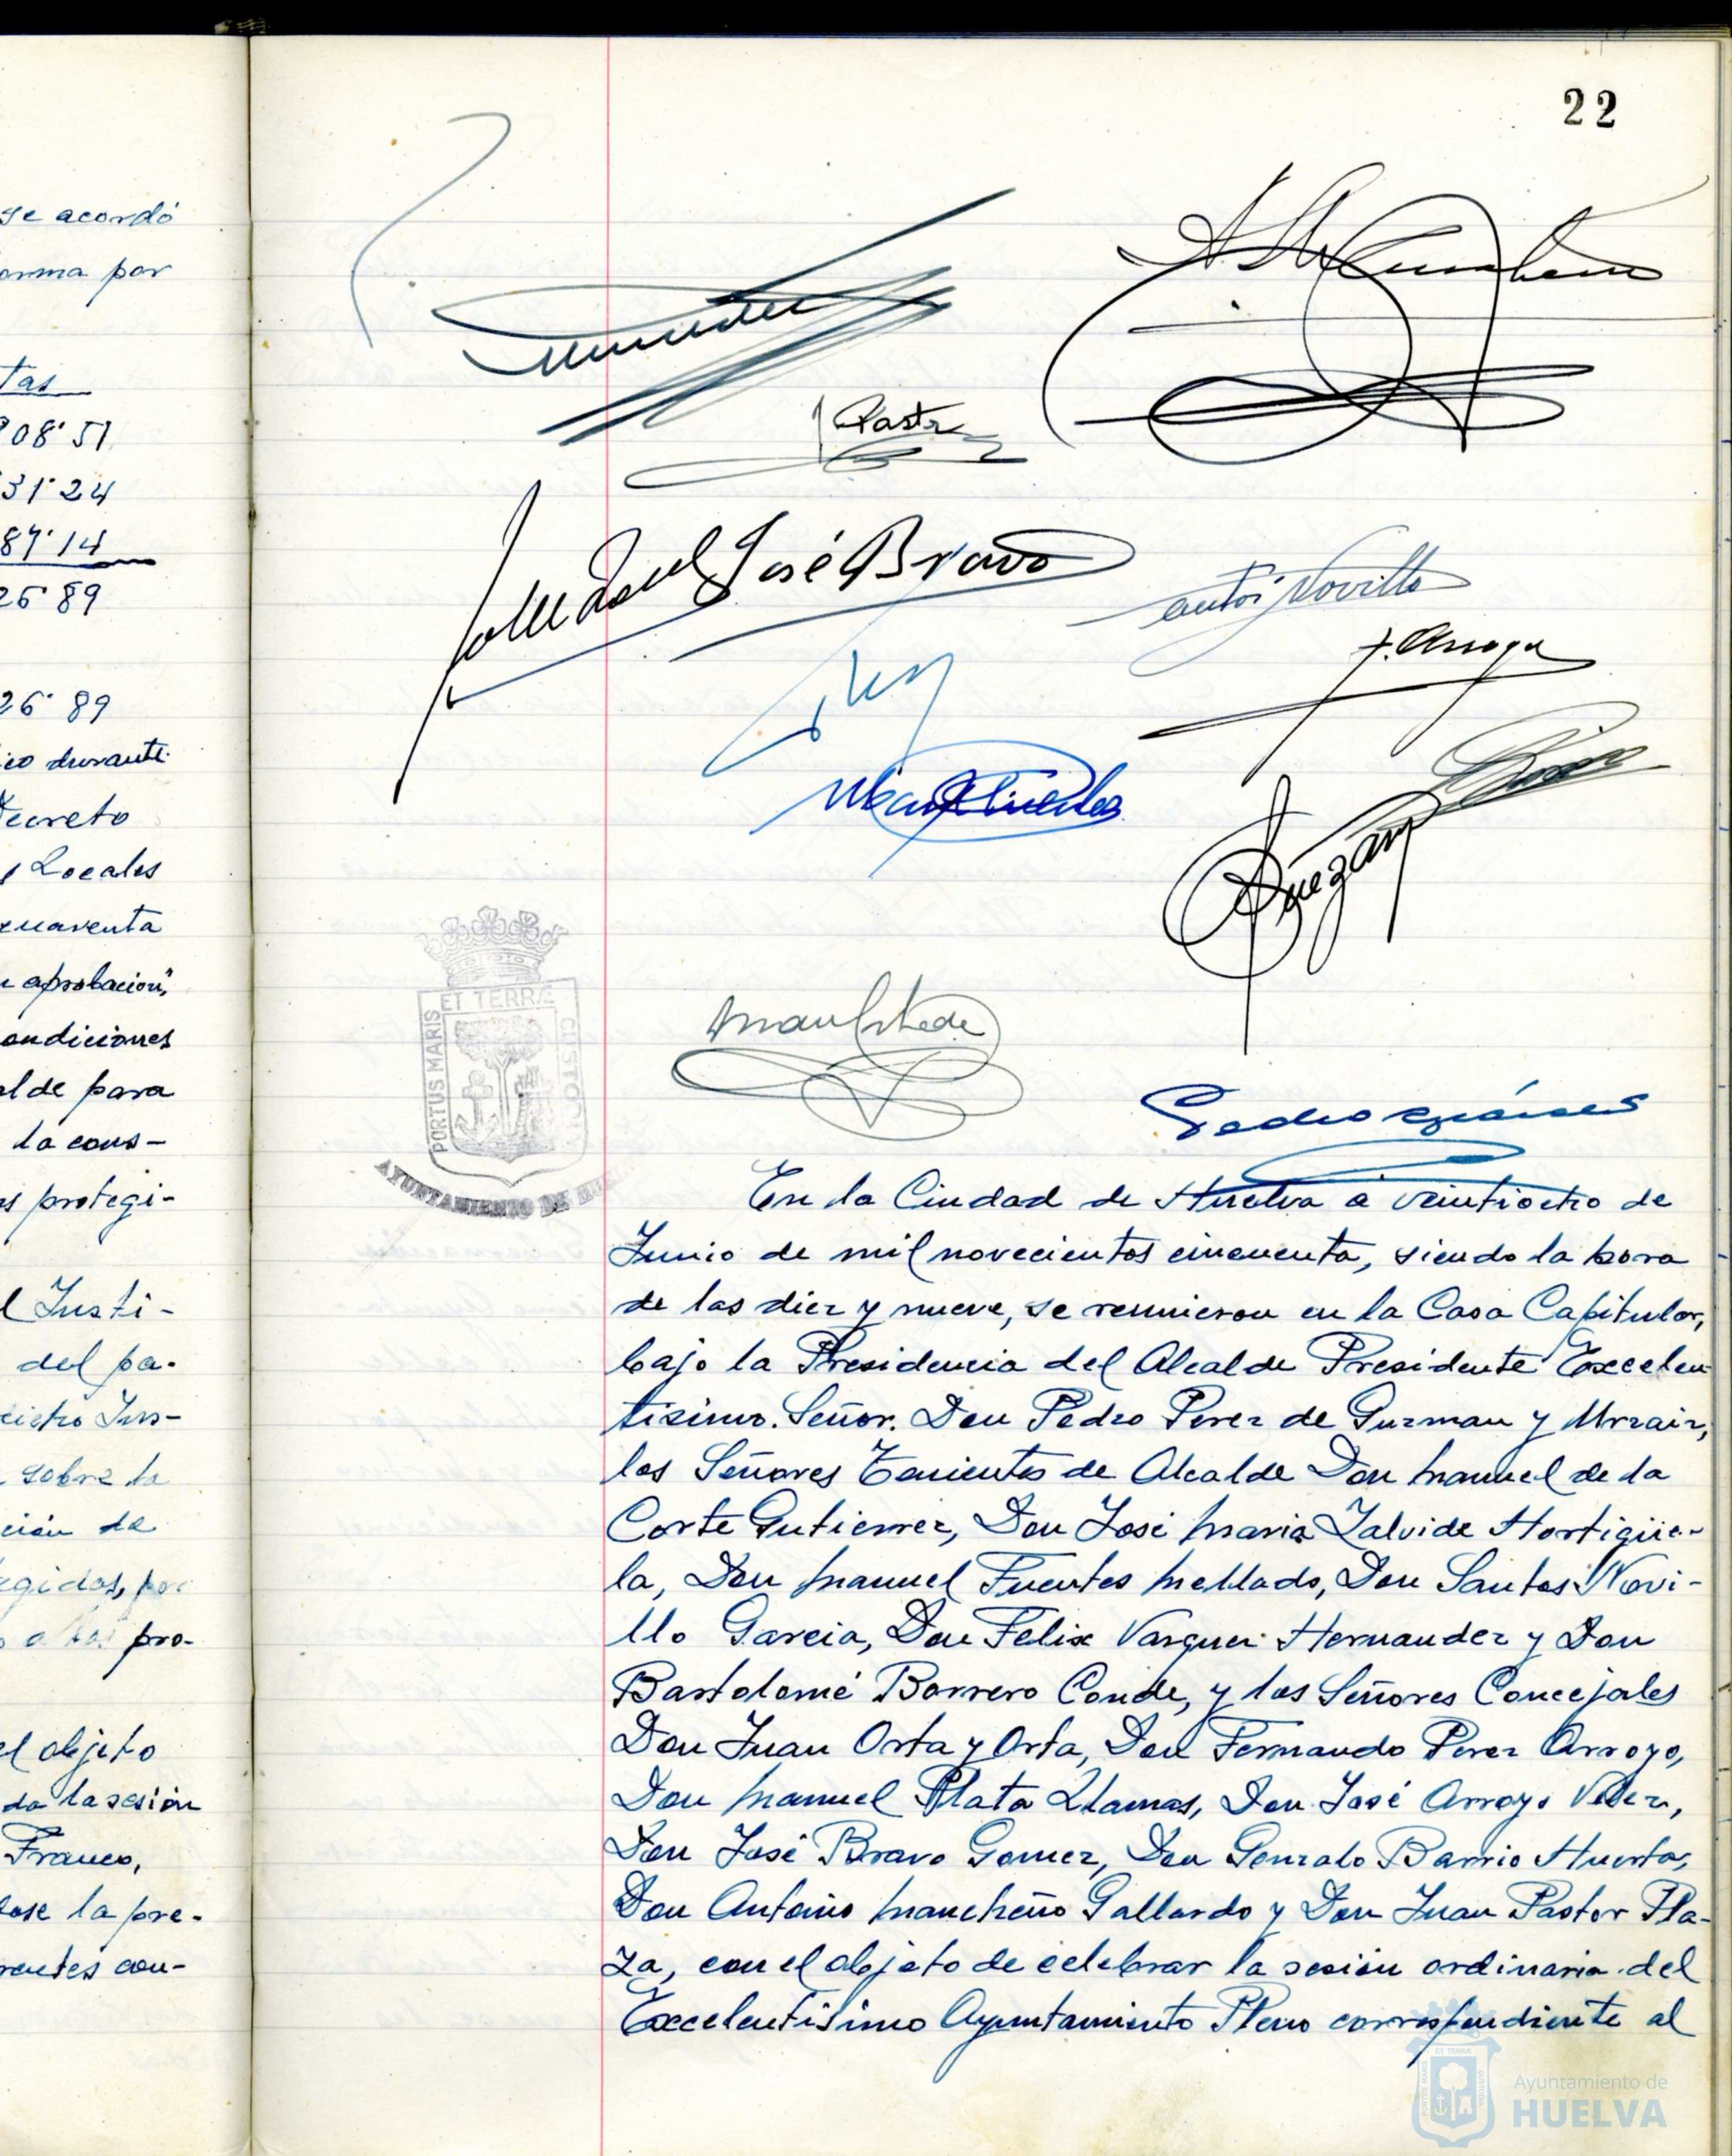 se acordó
orma por
tas
908'51
31'24
87'14
26'89
26'89
ico durante
Decreto
s Locales
cuarenta
aprobación,
condiciones
alde para
la cons-
protegi-
l Justi-
del pa-
sobre la
ción de
egidas, por
pro-
el objeto
da la sesión
Franco,
dose la pre-
rentes con-
22
Pastor
José Bravo
Novillo
J. Arroyo
PORTUS MARIS ET TERRÆ CUSTODIA
AYUNTAMIENTO DE HUELVA
En la Ciudad de Huelva a veintiocho de
Junio de mil novecientos cincuenta, siendo la hora
de las diez y nueve, se reunieron en la Casa Capitular,
bajo la Presidencia del Alcalde Presidente Excelen
tisimo. Señor. Don Pedro Perez de Guzman y Urzaiz,
los Señores Tenientes de Alcalde Don Manuel de la
Corte Gutierrez, Don José Maria Zalvide Hortigüe-
la, Don Manuel Fuentes Mellado, Don Santos Novi-
llo Garcia, Don Felix Vazquez Hernandez y Don
Bartolomé Borrero Conde, y los Señores Concejales
Don Juan Orta y Orta, Don Fernando Perez Arroyo,
Don Manuel Plata Llamas, Don José Arroyo Velez,
Don José Bravo Gomez, Don Gonzalo Barrio Huerta,
Don Antonio Mancheño Gallardo y Don Juan Pastor Pla-
za, con el objeto de celebrar la sesión ordinaria del
Excelentisimo Ayuntamiento Pleno correspondiente al
Ayuntamiento de
HUELVA